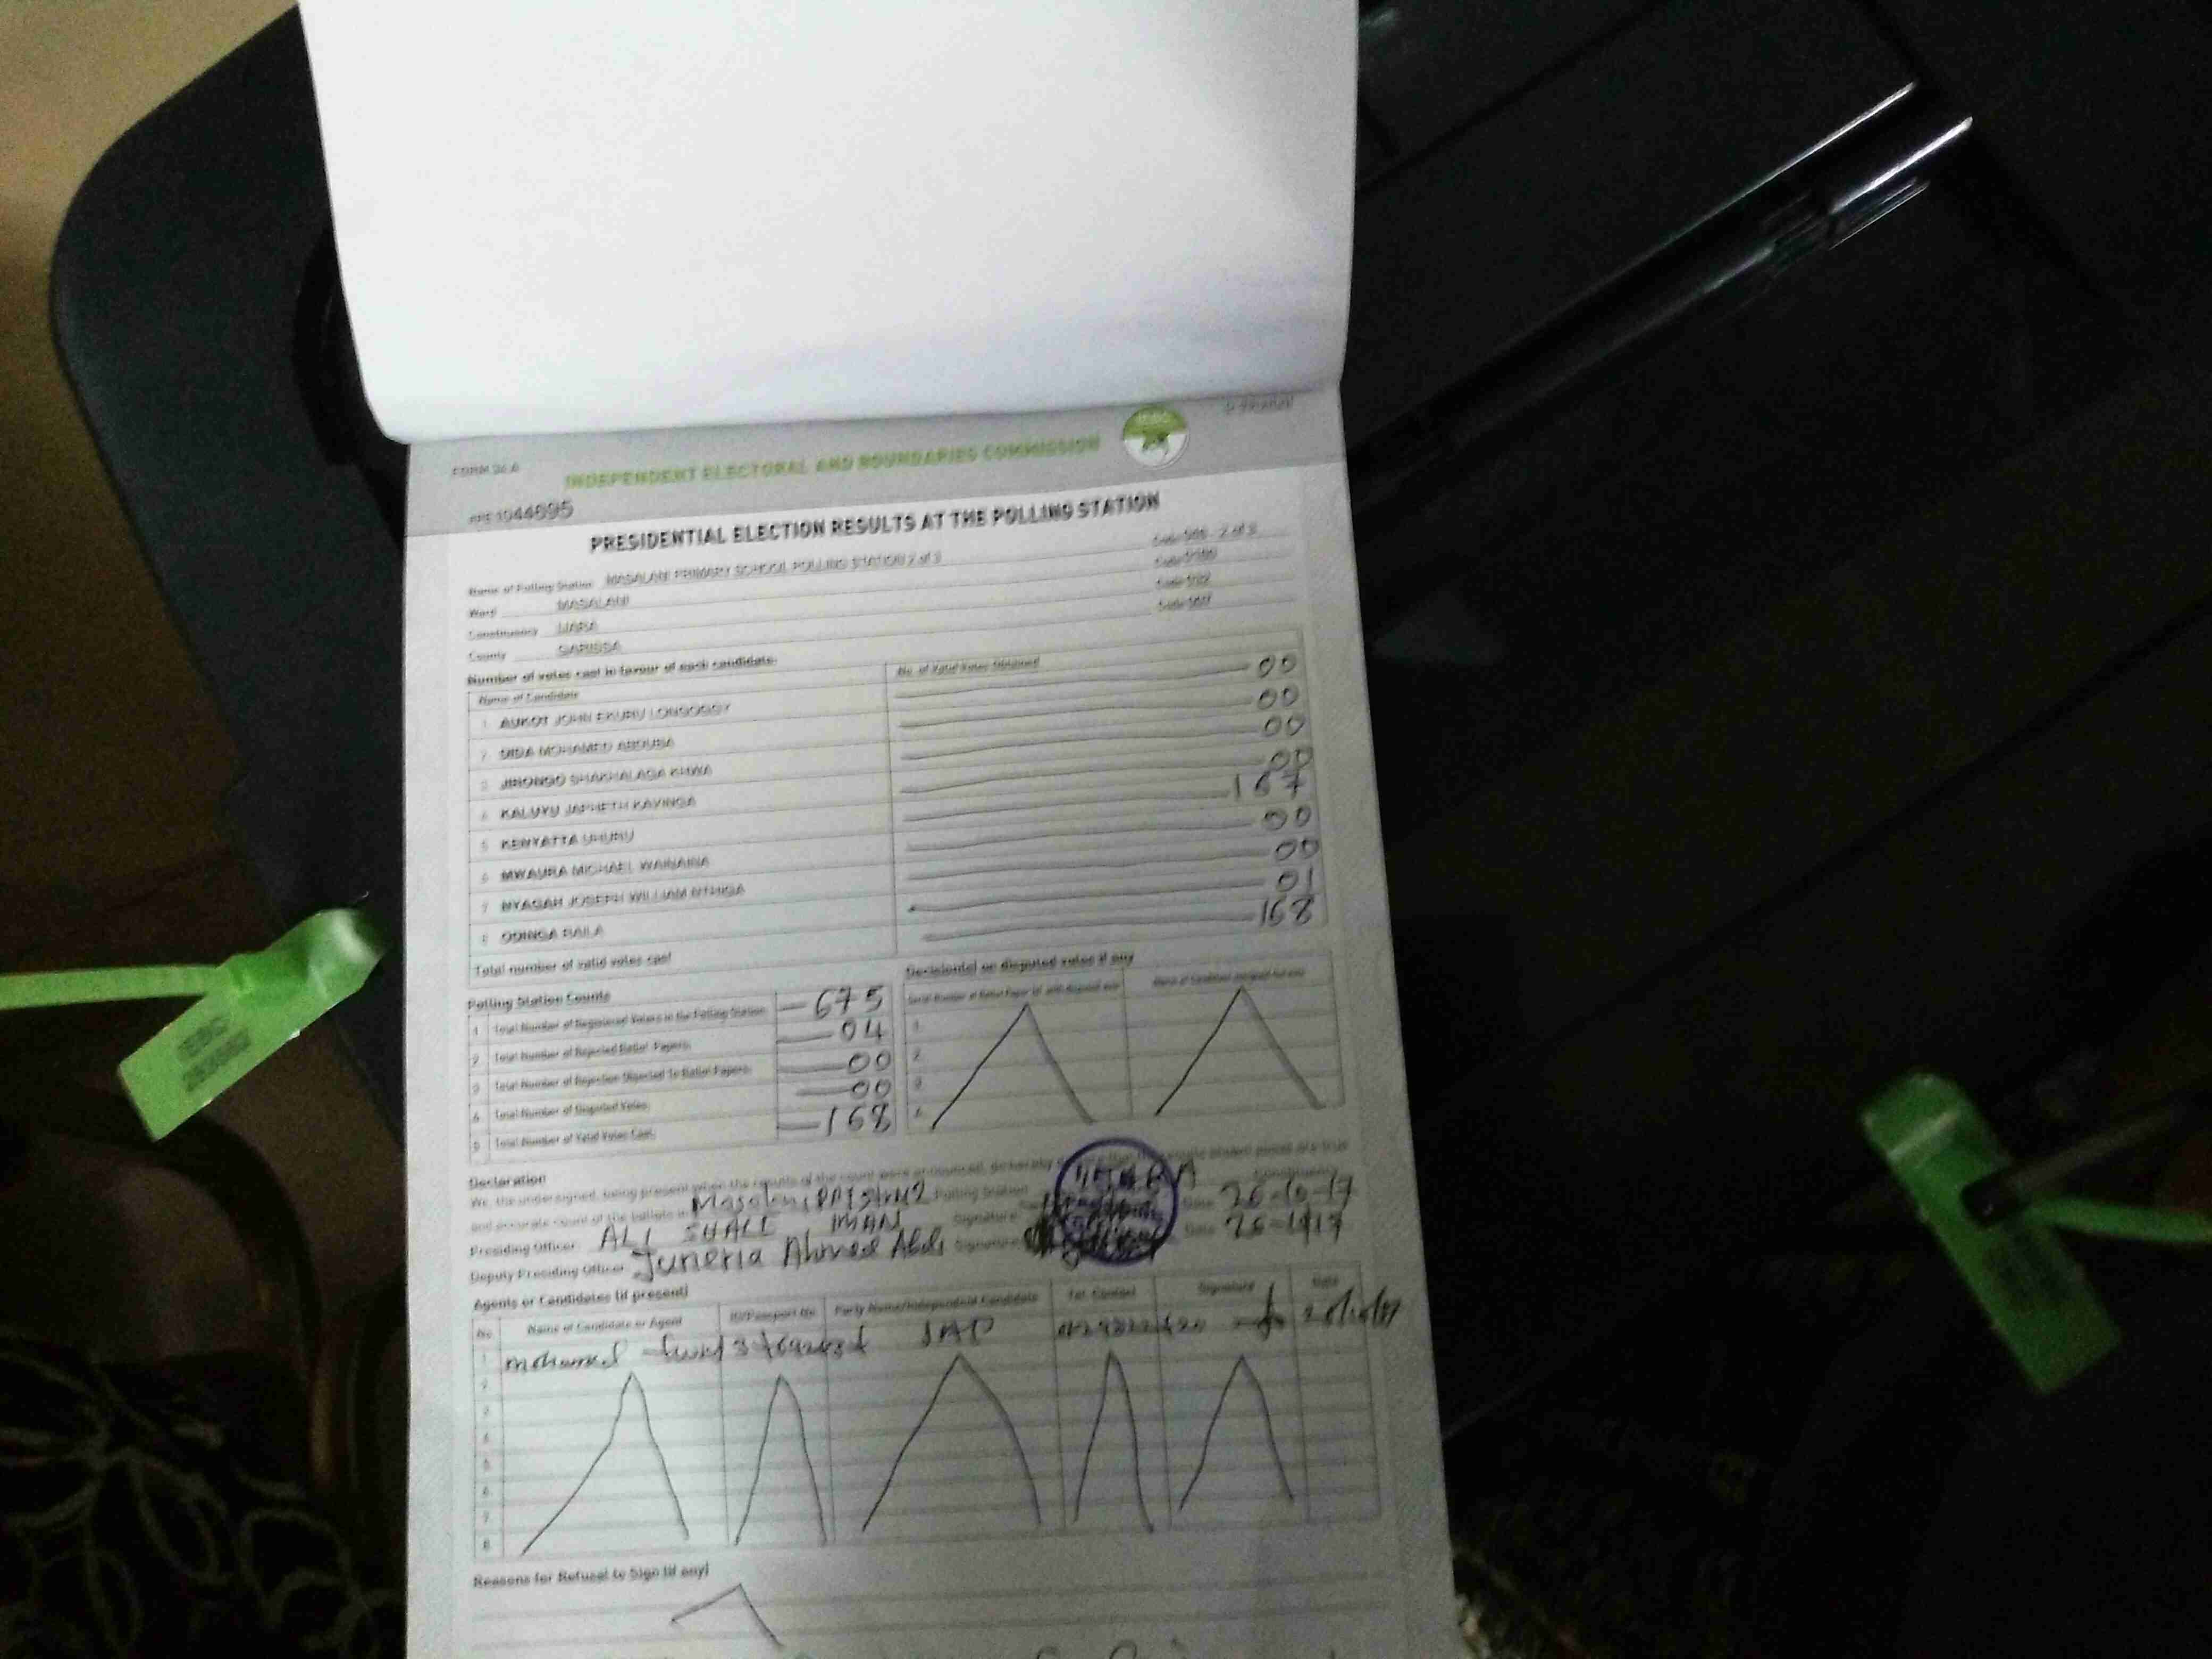 FORM 34 A
INDEPENDENT ELECTORAL AND BOUNDARIES COMMISSION
1044695
PRESIDENTIAL ELECTION RESULTS AT THE POLLING STATION
Name of Polling Station MASALANI PRIMARY SCHOOL POLLING STATION 2 of 3 Code 2 of 3
Ward MASALANI Code
Constituency IJARA Code
County GARISSA Code
Number of votes cast in favour of each candidate
Name of Candidate No. of Valid Votes Obtained
1 AUKOT JOHN EKURU LONGOGGY 00
2 DIDA MOHAMED ABDUBA 00
3 JIRONGO SHAKHALAGA KHWA 00
4 KALUYU JAPHETH KAVINGA 00
5 KENYATTA UHURU 167
6 MWAURA MICHAEL WAINAINA 00
7 NYAGAH JOSEPH WILLIAM NTHIGA 00
8 ODINGA RAILA 01
Total number of valid votes cast 168
Polling Station Counts
1 Total Number of Registered Voters in the Polling Station 675
2 Total Number of Rejected Ballot Papers 04
3 Total Number of Rejection Objected To Ballot Papers 00
4 Total Number of Disputed Votes 00
5 Total Number of Valid Votes Cast 168
Decision(s) on disputed votes if any
1
2
3
4
Declaration
We, the undersigned, being present when the results of the count were announced, do hereby declare that the results shown above are true
and accurate count of the ballots in Masalani Polling Station IJARA Constituency
Presiding Officer ALI IMAN Signature Date 26-10-17
Deputy Presiding Officer Juneria Ahmed Abdi Signature Date
Agents or Candidates (if present)
No. Name of Candidate or Agent ID/Passport No. Party Name/Independent Candidate Tel. Contact Signature Date
1 Mohamed
2
3
4
5
6
7
8
Reasons for Refusal to Sign (if any)